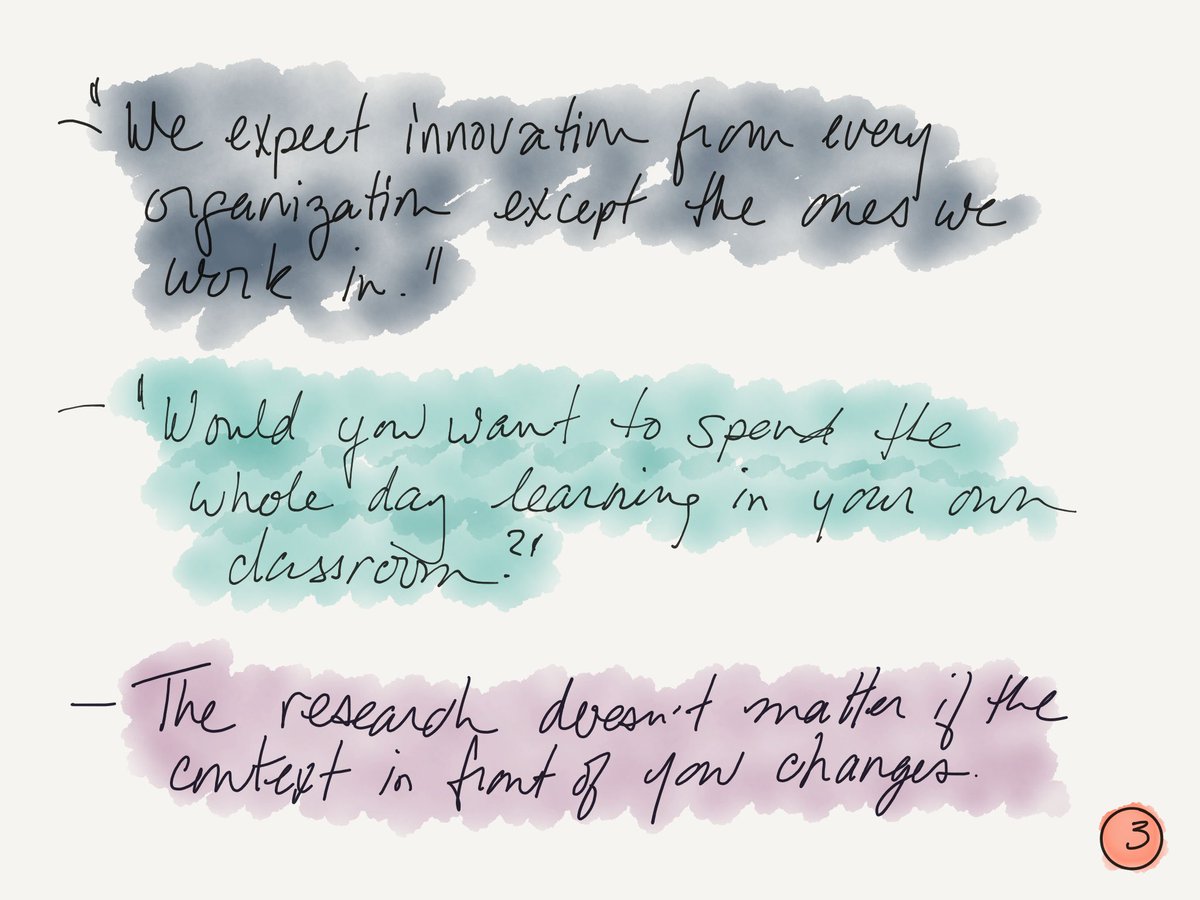 — "We expect innovation from every
organization except the ones we
work in."
— "Would you want to spend the
whole day learning in your own
classroom?"
— The research doesn't matter if the
context in front of you changes.
3